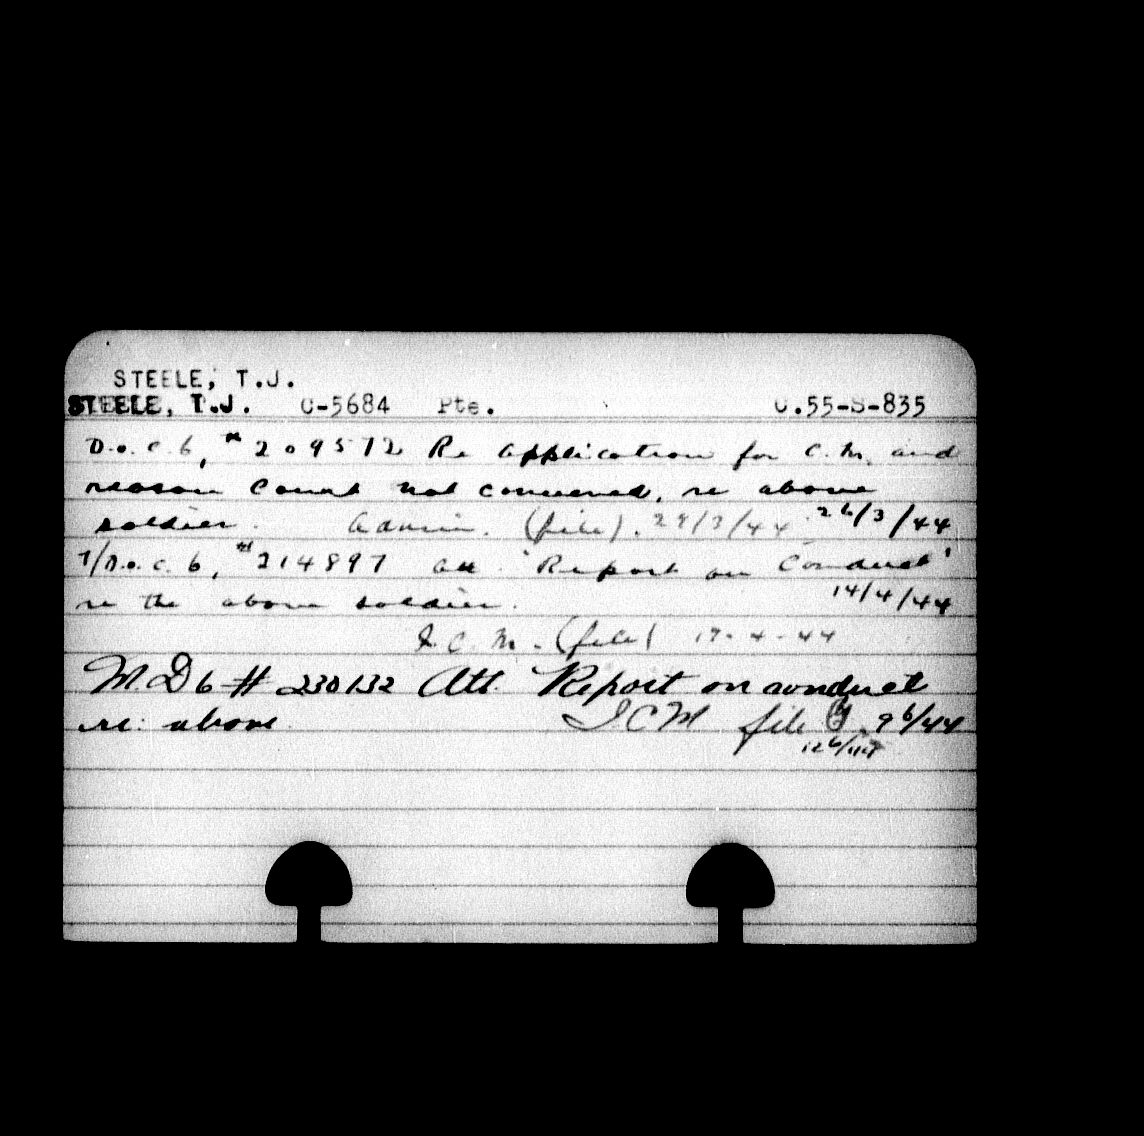 STEELE, T.J.
STEELE, T.J. C-5684 Pte. C.55-S-835
D.o.c. 6, # 209572 Re Application for C.M. and
reason Court not convened, re above
soldier. Admin. (file). 29/3/44 26/3/44
T/D.o.c. 6, # 214897 att "Report on Conduct"
re the above soldier. 14/4/44
I.C.M. (file) 17-4-44
M.D 6 # 230132 Att. Report on conduct
re: above. I C M file 9 6/44
12 6/44